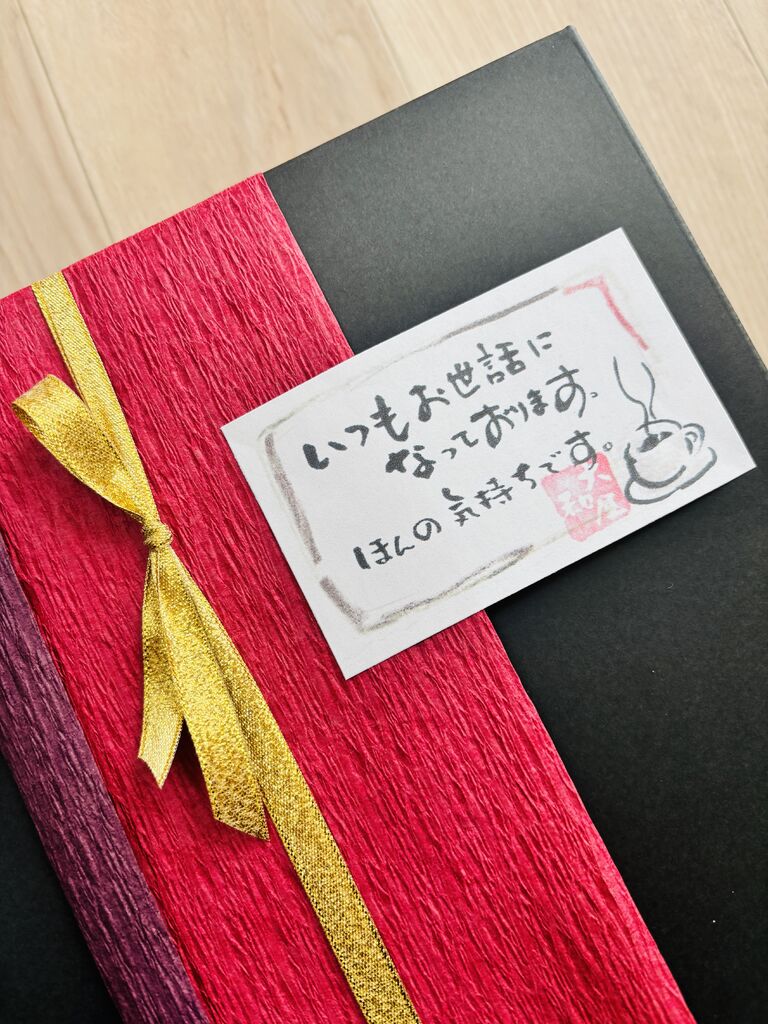 いつもお世話に
なっております。
ほんの気持ちです。
大屋
和